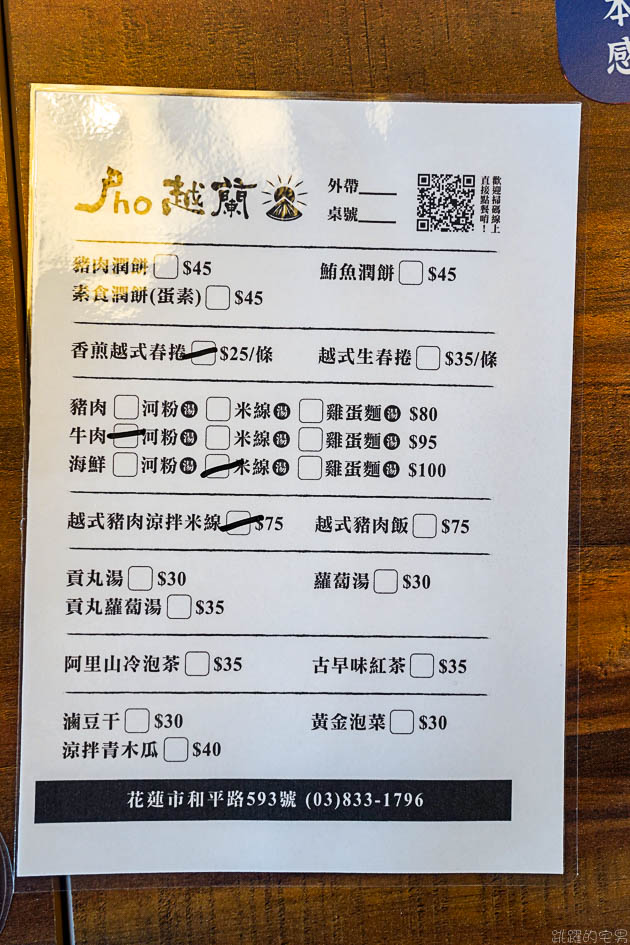 本
感
Pho 越蘭
外帶____
桌號____
歡迎掃碼線上
直接點餐唷！
豬肉潤餅 $45 鮪魚潤餅 $45
素食潤餅(蛋素) $45
香煎越式春捲 $25/條 越式生春捲 $35/條
豬肉 河粉湯 米線湯 雞蛋麵湯 $80
牛肉 河粉湯 米線湯 雞蛋麵湯 $95
海鮮 河粉湯 米線湯 雞蛋麵湯 $100
越式豬肉涼拌米線 $75 越式豬肉飯 $75
貢丸湯 $30 蘿蔔湯 $30
貢丸蘿蔔湯 $35
阿里山冷泡茶 $35 古早味紅茶 $35
滷豆干 $30 黃金泡菜 $30
涼拌青木瓜 $40
花蓮市和平路593號 (03)833-1796
跳躍的宅男